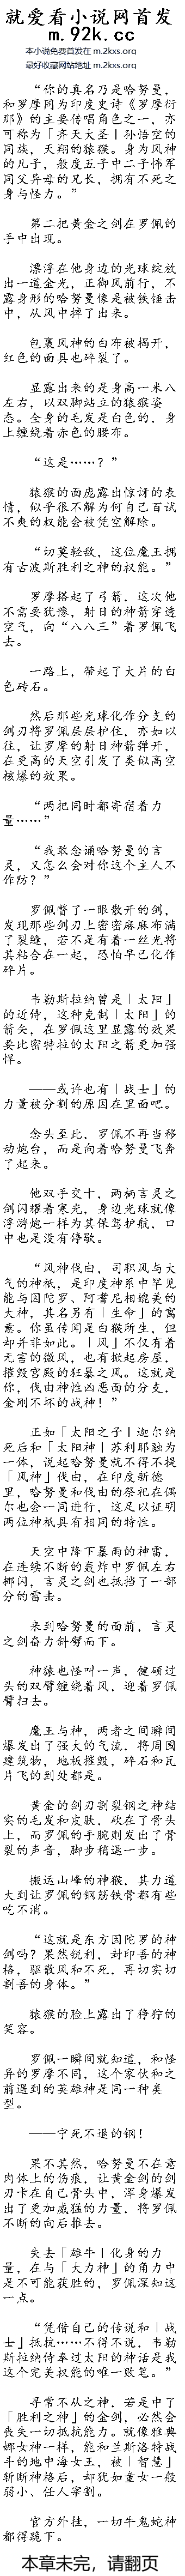 就爱看小说网首发
m.92k.cc
本小说免费首发在 m.2kxs.org
最好收藏网站地址 m.2kxs.org
“你的真名乃是哈努曼，
和罗摩同为印度史诗《罗摩衍
那》的主要传唱角色之一，亦
可称为「齐天大圣｜孙悟空的
同族，天翔的猿猴。身为风神
的儿子，般度五子中二子怖军
同父异母的兄长，拥有不死之
身与怪力。”
第二把黄金之剑在罗佩的
手中出现。
漂浮在他身边的光球绽放
出一道金光，正御风前行，不
露身形的哈努曼像是被铁锤击
中，从风中掉了出来。
包裹风神的白布被揭开，
红色的面具也碎裂了。
显露出来的是身高一米八
左右，以双脚站立的猿猴姿
态。全身的毛发是白色的，身
上缠绕着赤色的腰布。
“这是……？”
猿猴的面庞露出惊讶的表
情，似乎很不解为何自己百试
不爽的权能会被凭空解除。
“切莫轻敌，这位魔王拥
有古波斯胜利之神的权能。”
罗摩搭起了弓箭，这次他
不需要犹豫，射日的神箭穿透
空气，向“八八三”着罗佩飞
去。
一路上，带起了大片的白
色砖石。
然后那些光球化作分支的
剑刃将罗佩层层护住，亦如以
往，让罗摩的射日神箭弹开，
在更高的天空引发了类似高空
核爆的效果。
“两把同时都寄宿着力
量……”
“我敢念诵哈努曼的言
灵，又怎么会对你这个主人不
作防？”
罗佩瞥了一眼散开的剑，
发现那些剑刃上密密麻麻布满
了裂缝，若不是有着一丝光将
其粘合在一起，恐怕早已化作
碎片。
韦勒斯拉纳曾是｜太阳」
的近侍，这种克制｜太阳」的
箭矢，在罗佩这里显露的效果
要比密特拉的太阳之箭更加强
悍。
——或许也有｜战士」的
力量被分割的原因在里面吧。
念头至此，罗佩不再当移
动炮台，而是向着哈努曼飞奔
了起来。
他双手交十，两柄言灵之
剑闪耀着寒光，身边光球就像
浮游炮一样为其保驾护航，口
中也是没有停歇。
“风神伐由，司职风与大
气的神祇，是印度神系中罕见
能与因陀罗、阿耆尼相媲美的
大神，其名另有｜生命」的寓
意。你虽传闻是白猴所生，但
却并非如此。｜风」不仅有着
无害的微风，也有掀起房屋，
摧毁宫殿的狂暴之风。这就是
你，伐由神性凶恶面的分支，
金刚不坏的战神！”
正如「太阳之子｜迦尔纳
死后和「太阳神｜苏利耶融为
一体，说起哈努曼就不得不提
「风神」伐由，在印度新德
里，哈努曼和伐由的祭祀在偶
尔也会一同进行，这足以证明
两位神祇具有相同的特性。
天空中降下暴雨的神雷，
在连续不断的轰炸中罗佩左右
挪闪，言灵之剑也抵挡了一部
分的雷击。
来到哈努曼的面前，言灵
之剑奋力斜劈而下。
神猿也怪叫一声，健硕过
头的双臂缠绕着风，迎着罗佩
臂扫去。
魔王与神，两者之间瞬间
爆发出了强大的气流，将周围
建筑物，地板摧毁，碎石和瓦
片飞的到处都是。
黄金的剑刃割裂钢之神结
实的毛发和皮肤，砍在了骨头
上，而罗佩的手腕则发出了骨
裂的声音，脚步稍退一步。
搬运山峰的神猴，其力道
大到让罗佩的钢筋铁骨都有些
吃不消。
“这就是东方因陀罗的神
剑吗？果然锐利，封印吾的神
格，驱散风和不死，再切实切
割吾的身体。”
猿猴的脸上露出了狰狞的
笑容。
罗佩一瞬间就知道，和怪
异的罗摩不同，这个家伙和之
前遇到的英雄神是同一种类
型。
——宁死不退的钢！
果不其然，哈努曼不在意
肉体上的伤痕，让黄金剑的剑
刃卡在自己骨头中，浑身爆发
出了更加威猛的力量，将罗佩
不断的向后推去。
失去「雄牛｜化身的力
量，在与「大力神」的角力中
是不可能获胜的，罗佩深知这
一点。
“凭借自己的传说和｜战
士」抵抗……不得不说，韦勒
斯拉纳侍奉过太阳的神话是我
这个完美权能的唯一败笔。”
寻常不从之神，若是中了
「胜利之神」的金剑，必然会
丧失一切抵抗能力。就像雅典
娜女神一样，能和兰斯洛特战
斗的地中海女王，被｜智慧」
斩断神格后，却犹如童女一般
弱小、任人宰割。
官方外挂，一切牛鬼蛇神
都得跪下。
本章未完，请翻页